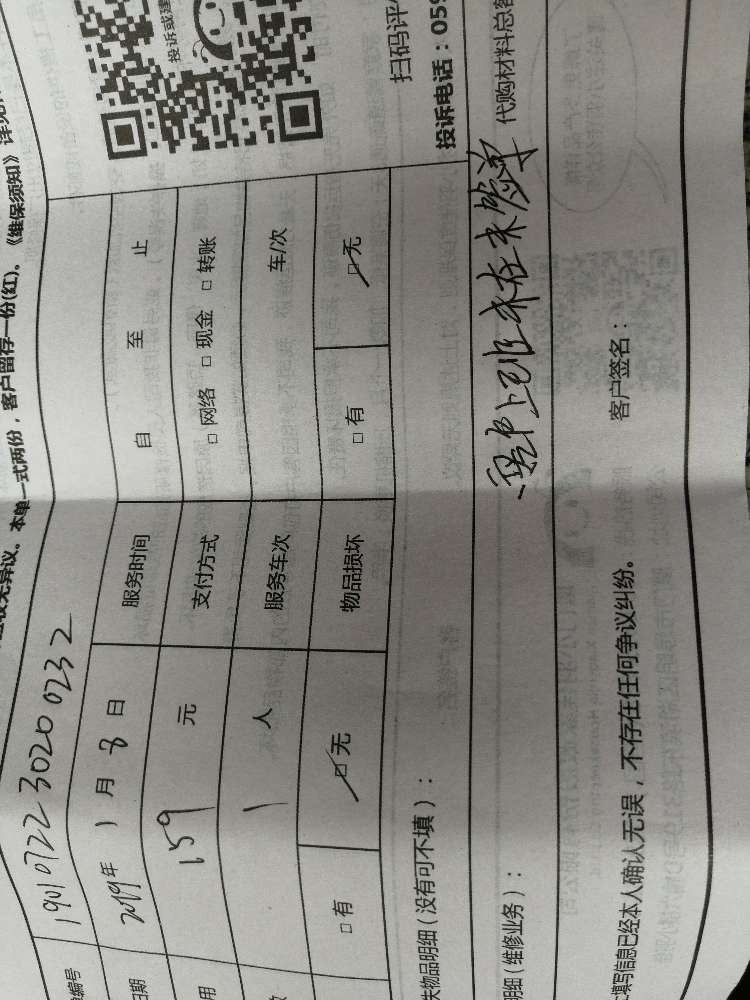 验收无异议。本单一式两份，客户留存一份(红)。《维保须知》详见
编号 190107223020 0232
日期 2019年 1月 8日 服务时间 自 至 止
用 159 元 支付方式 □ 网络 □ 现金 □ 转账
1 人 服务车次 车/次
□ 有 □ 无 物品损坏 □ 有 □ 无
失物品明细（没有可不填）：
投诉或建
扫码评
投诉电话：059
明细（维修业务）：
客户上班未在未签字
代购材料总
填写信息已经本人确认无误，不存在任何争议纠纷。 客户签名：